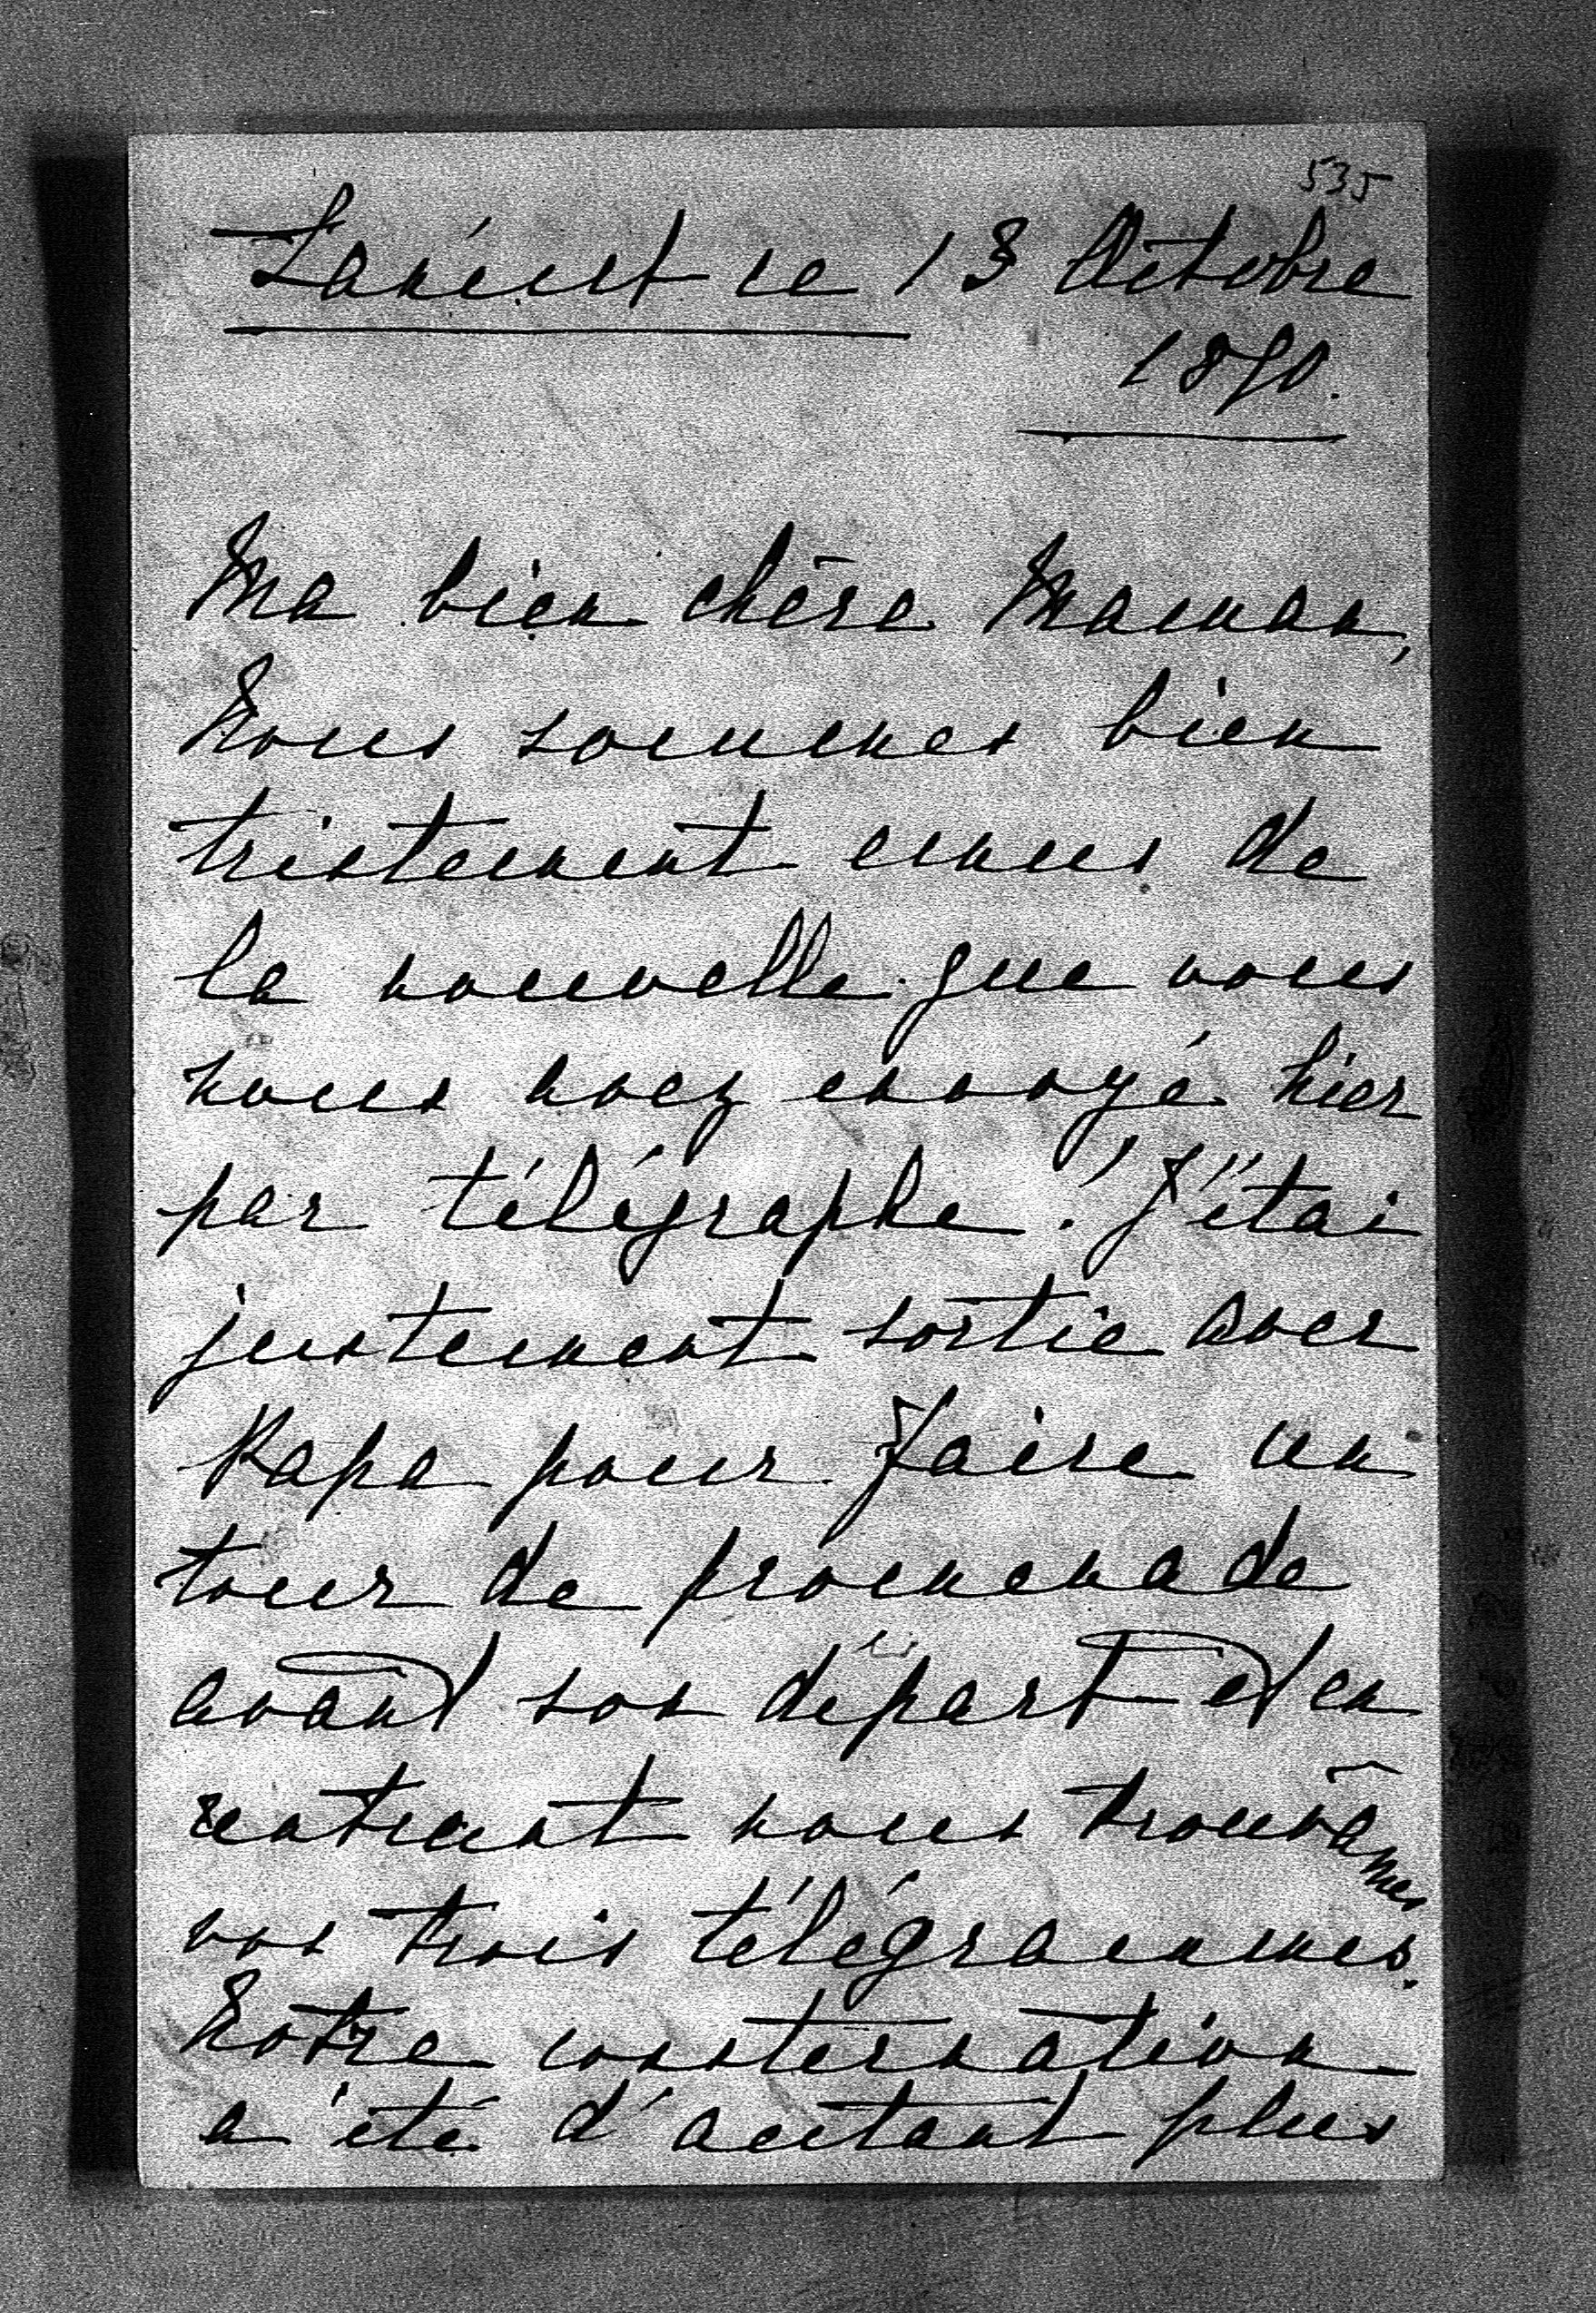 535
Lanéut le 13 Octobre
1890.
Ma bien chère Maman,
Nous sommes bien
tristement emus de
la nouvelle que vous
nous avez envoyé hier
par télégraphe! J'étai
justement sortie avec
Papa pour faire un
tour de promenade
avant son départ et en
rentrant nous trouvâmes
vos trois télégrammes.
Notre consternation
a été d'autant plus